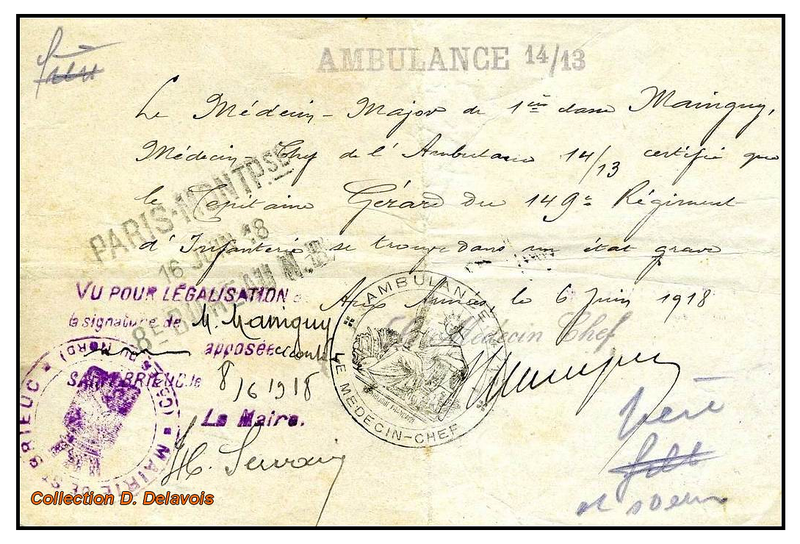 AMBULANCE 14/13
Le Médecin-Major de 1ère classe Mainguy,
Médecin-Chef de l'Ambulance 14/13 certifie que
le Capitaine Gérard du 149e Régiment
d'Infanterie se trouve dans un état grave
Aux Armées, le 6 Juin 1918
Le Médecin Chef
Mainguy
PARIS-MONTPsse
16 JUIN 18
8E BUREAU M.R.
VU POUR LÉGALISATION
la signature de M. Mainguy
apposée
SAINT-BRIEUC, le 8/6 1918
Le Maire.
H. Servain
MAIRIE DE St BRIEUC (CÔTES DU NORD)
AMBULANCE
LE MÉDECIN-CHEF
père
et soeur
Collection D. Delavois